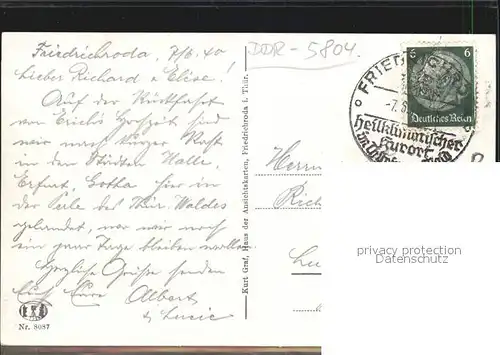 Friedrichroda, 7/6.40
DDR - 5804
Lieber Richard u Elise!
Auf der Rückfahrt
von Erich's Hochzeit sind
wir nach kurzer Rast
in den Städten Halle,
Erfurt, Gotha hier in
der Perle des Thür. Waldes
gelandet, wo wir noch
ein paar Tage bleiben wollen.
Herzliche Grüße senden
Euch Eure Albert
u Lucie
Nr. 8087
Kurt Graf, Haus der Ansichtskarten, Friedrichroda i. Thür.
FRIEDRICHR
-7.6
heilklimatischer
Kurort
6 6
Deutsches Reich
Herrn
Rich
privacy protection